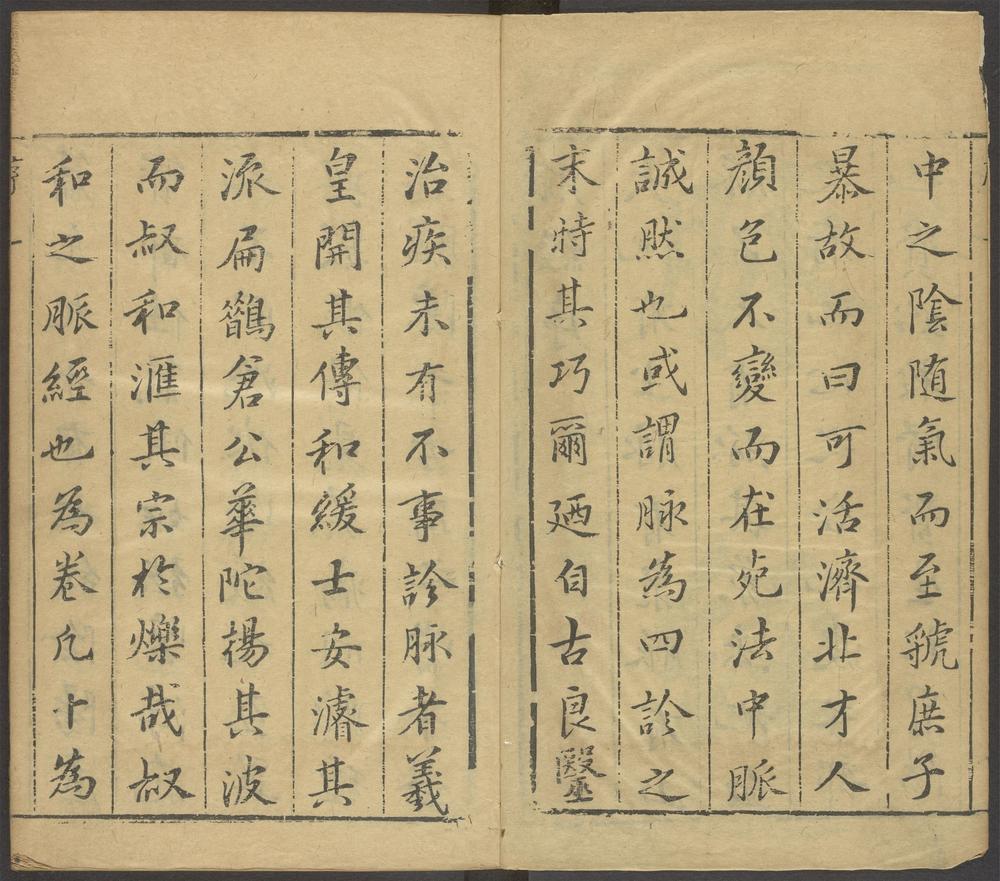 中之陰随氣而至虢庶子
暴故而曰可活濟非才人
顔色不變而在死法中脈
誠然也或謂脉為四診之
末特其巧爾廼自古良毉
治疾未有不事診脉者羲
皇開其傳和緩士安濬其
派扁鶬倉公華陀楊其波
而叔和滙其宗於爍哉叔
和之脈經也為卷凡十為